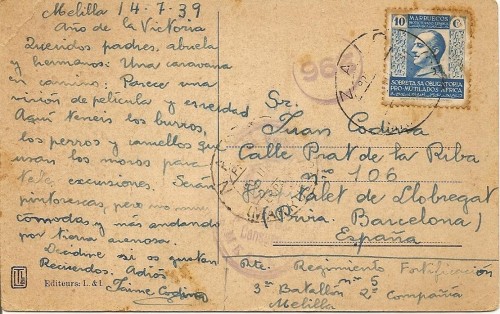 Melilla 14-7-39
Año de la Victoria
Queridos padres, abuela
y hermanos: Una caravana
en camino: Parece una
visión de película y es verdad
Aquí teneis los burros,
los perros y camellos que
usan los moros para
excursiones. Serán
pintorescas, pero no muy
cómodas y más andando
por tierra arenosa.
Decidme si os gustan
Recuerdos. Adiós
Jaime Codina
Editeurs: L. & L.
MARRUECOS
10 Cs
SOBRETASA OBLIGATORIA
PRO-MUTILADOS AFRICA
Sr.
Juan Codina
Calle Prat de la Riba
nº 106
Hospitalet de Llobregat
(Prvia. Barcelona)
España
Rte. Regimiento Fortificación
nº 5
3er Batallón 2ª Compañía
Melilla